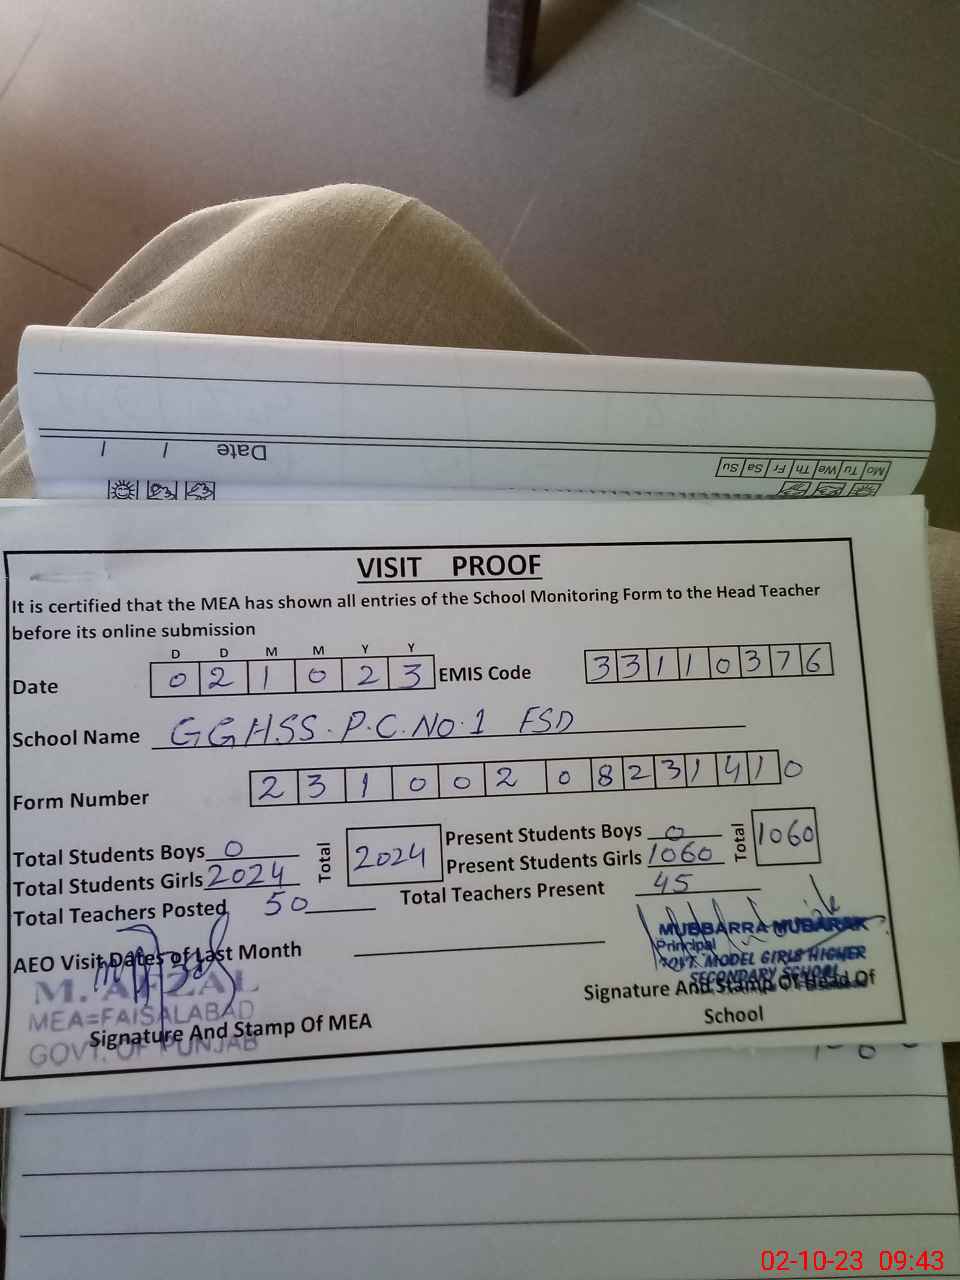 Date / /
Mo Tu We Th Fr Sa Su
VISIT PROOF
It is certified that the MEA has shown all entries of the School Monitoring Form to the Head Teacher
before its online submission
D D M M Y Y
Date 0 2 1 0 2 3 EMIS Code 3 3 1 1 0 3 7 6
School Name GGHSS. P.C. No. 1 FSD
Form Number 2 3 1 0 0 2 0 8 2 3 1 4 1 0
Total Students Boys 0 Total 2024 Present Students Boys 0 Total 1060
Total Students Girls 2024 Present Students Girls 1060
Total Teachers Posted 50 Total Teachers Present 45
AEO Visit Dates of Last Month
MUBBARRA MUBARAK
Principal
GOVT. MODEL GIRLS HIGHER
SECONDARY SCHOOL
M. AFZAL
MEA=FAISALABAD
GOVT. OF PUNJAB
Signature And Stamp Of MEA
Signature And Stamp Of Head Of
School
02-10-23 09:43